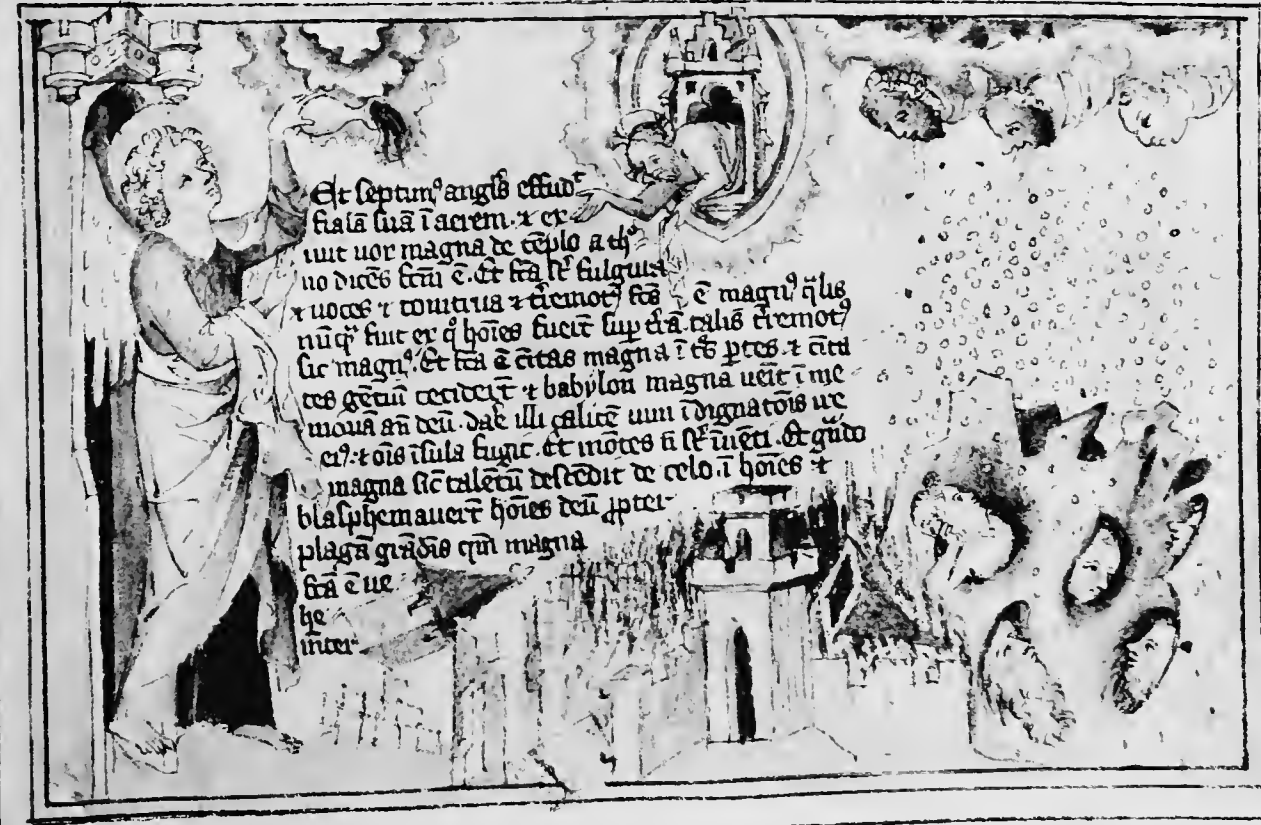 Et septim⁹ angl̄s effud͛
fialā suā ī aerem · ⁊ ex
iuit uox magna de tēplo a th͛
no dicēs fcm̄ ē. Et fca s͛t fulgura
⁊ uoces ⁊ tonitrua ⁊ t͛remot⁹ fcs̄ ē magn⁹ q̄lis
nūq͛ fuit ex q͛ hoīes fuer̄t sup t͛rā talis t͛remot⁹
sic magn⁹. Et fca ē ciuitas magna ī t͛s p̱tes · ⁊ ciuita
tes gētiū cecider̄t ⁊ babylon magna uēit ī me
moriā an̄ deū · dar̄ illi calicē uini īdignatōis ire
ei⁹ · ⁊ oīs īsula fugit · Et mōtes n̄ s͛t īuēti · Et g͛ndo
magna sic̄ talētū descēdit de celo · ī hoīes ⁊
blasphemauer̄t hoīes deū ꝓpter
plagā grādīs qm̄ magna
fca ē ue
he
mter